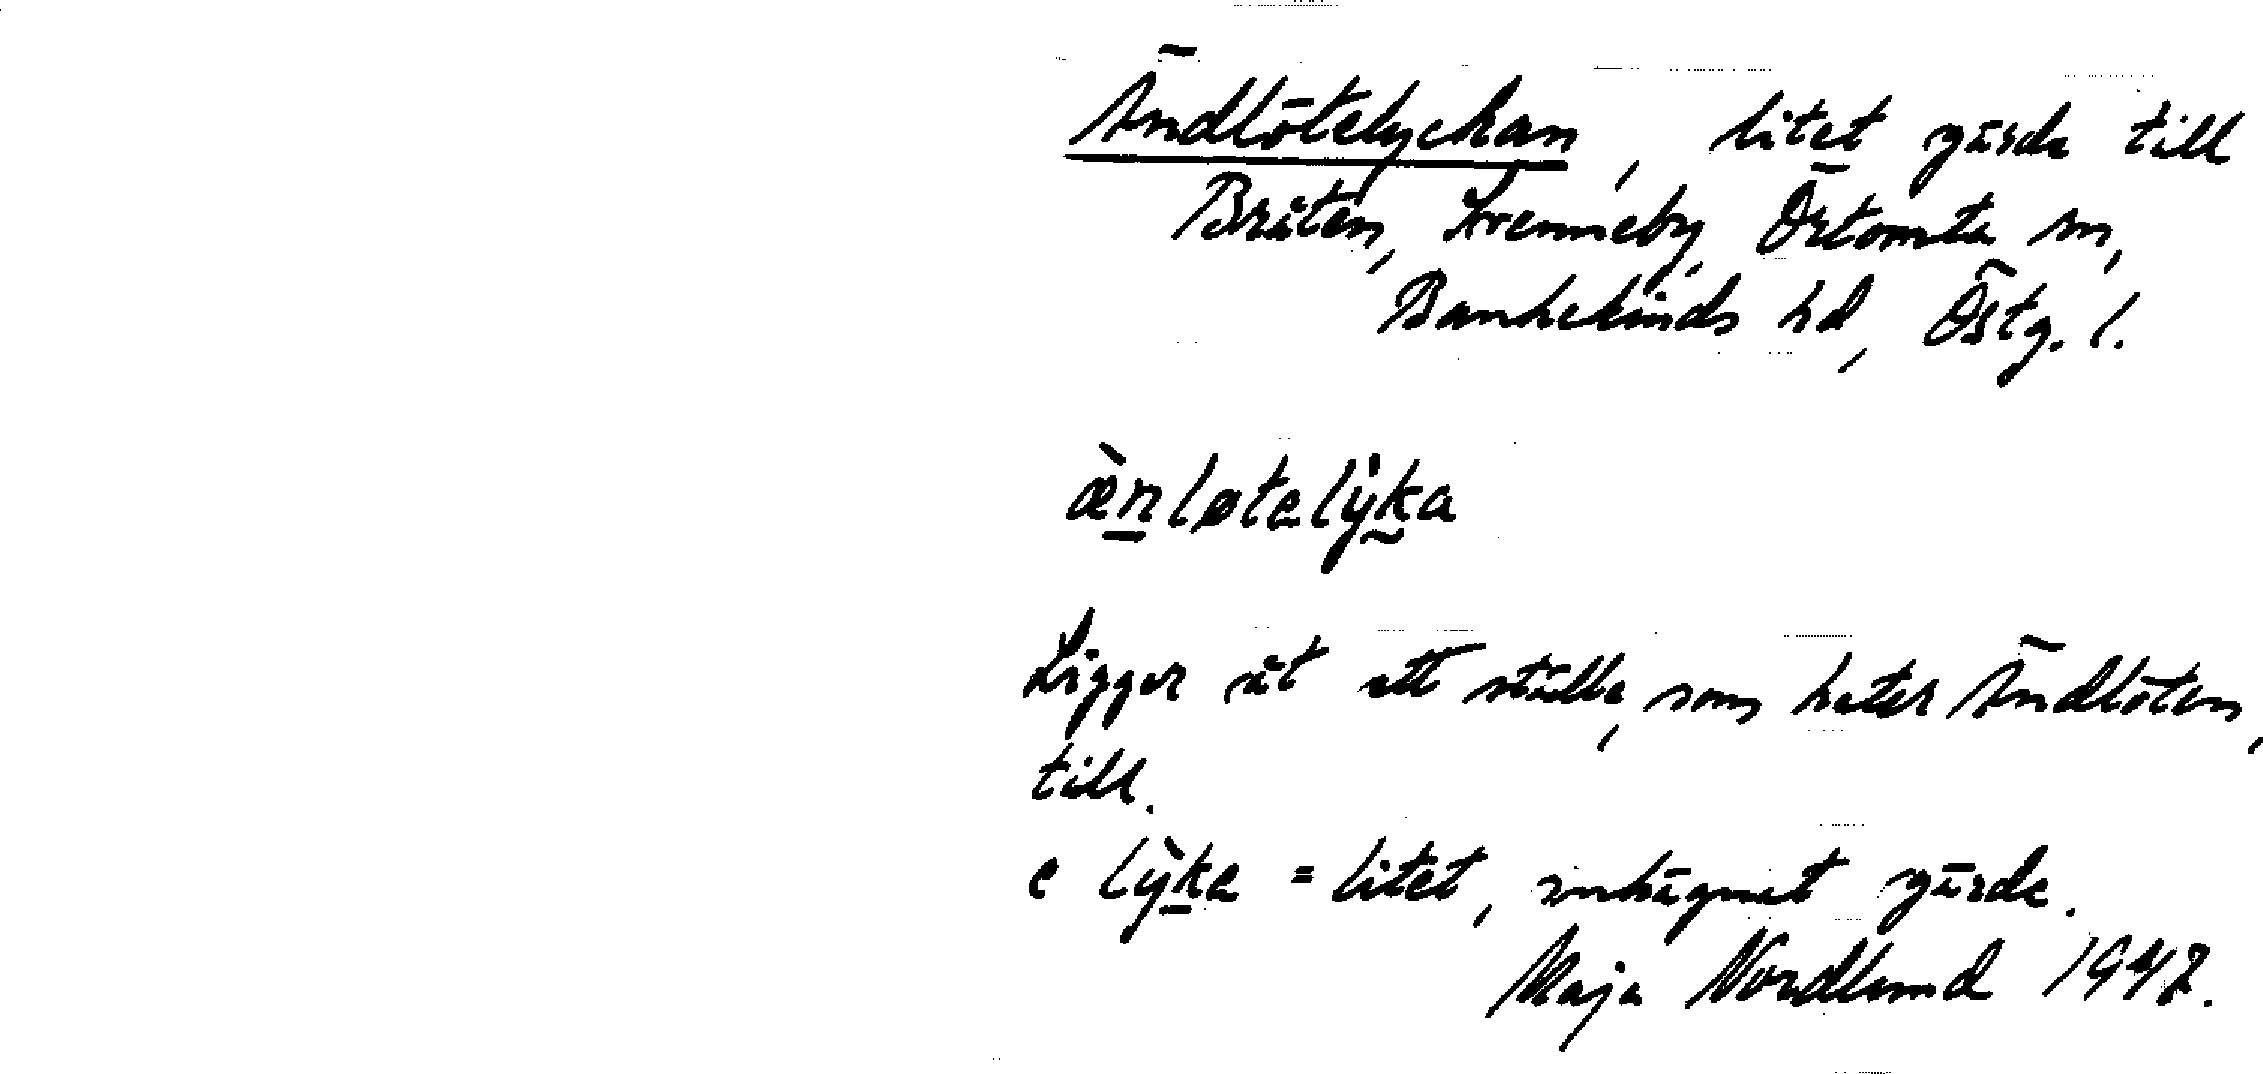 Ändlötelyckan, litet gärde till
Bråten, Frenneby, Örtomta sn,
Bankekinds hd, Östg. l.
æ̀nløtelẙka
Ligger åt ett ställe, som heter Ändlöten,
till.
e lỳka = litet, inhägnat gärde.
Maja Nordlund 1947.